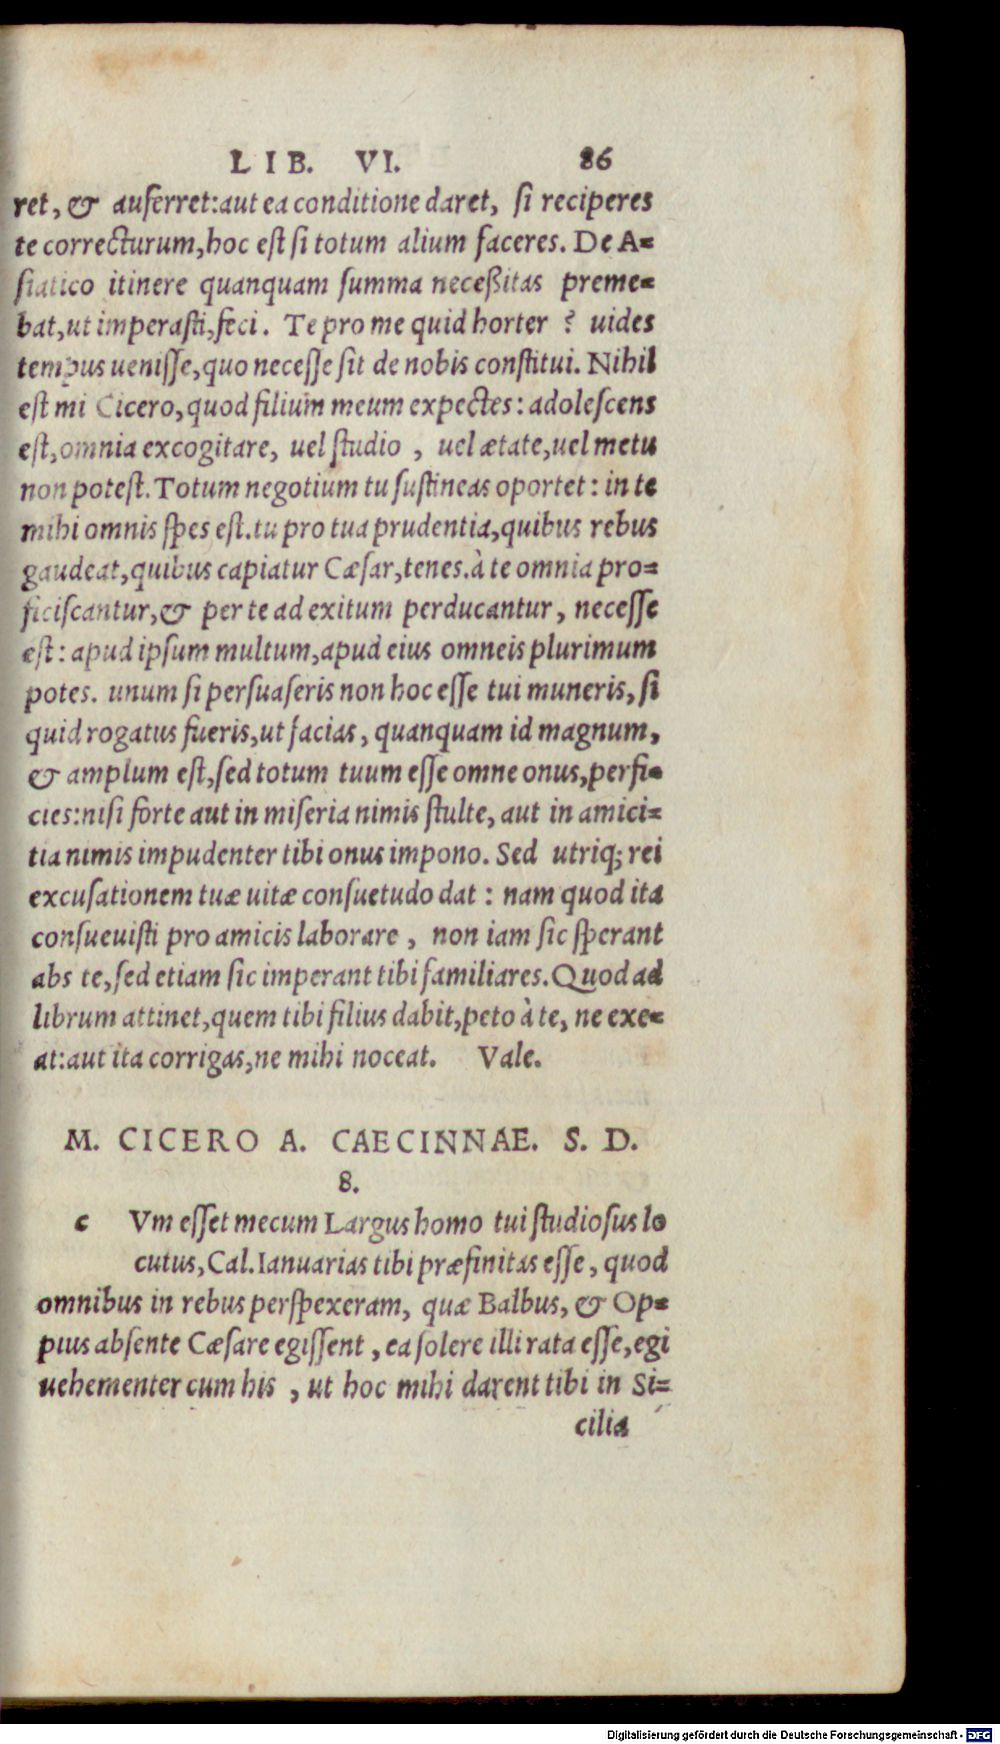 LIB. VI. 86
ret, & auferret: aut ea conditione daret, si reciperes
te correcturum, hoc est si totum alium faceres. De A=
siatico itinere quanquam summa neceßitas preme=
bat, ut imperasti, feci. Te pro me quid horter ? uides
tempus uenisse, quo necesse sit de nobis constitui. Nihil
est mi Cicero, quod filium meum expectes: adolescens
est, omnia excogitare, uel studio , uel ætate, uel metu
non potest. Totum negotium tu sustineas oportet: in te
mihi omnis spes est. tu pro tua prudentia, quibus rebus
gaudeat, quibus capiatur Cæsar, tenes. à te omnia pro=
ficiscantur, & per te ad exitum perducantur, necesse
est: apud ipsum multum, apud eius omneis plurimum
potes. unum si persuaseris non hoc esse tui muneris, si
quid rogatus fueris, ut facias, quanquam id magnum,
& amplum est, sed totum tuum esse omne onus, perfi=
cies: nisi forte aut in miseria nimis stulte, aut in amici=
tia nimis impudenter tibi onus impono. Sed utriq; rei
excusationem tuæ uitæ consuetudo dat: nam quod ita
consueuisti pro amicis laborare, non iam sic sperant
abs te, sed etiam sic imperant tibi familiares. Quod ad
librum attinet, quem tibi filius dabit, peto à te, ne exe=
at: aut ita corrigas, ne mihi noceat. Vale.
M. CICERO A. CAECINNAE. S. D.
8.
c Vm esset mecum Largus homo tui studiosus lo
cutus, Cal. Ianuarias tibi præfinitas esse, quod
omnibus in rebus perspexeram, quæ Balbus, & Op=
pius absente Cæsare egissent, ea solere illi rata esse, egi
uehementer cum his , ut hoc mihi darent tibi in Si=
cilia
Digitalisierung gefördert durch die Deutsche Forschungsgemeinschaft - DFG